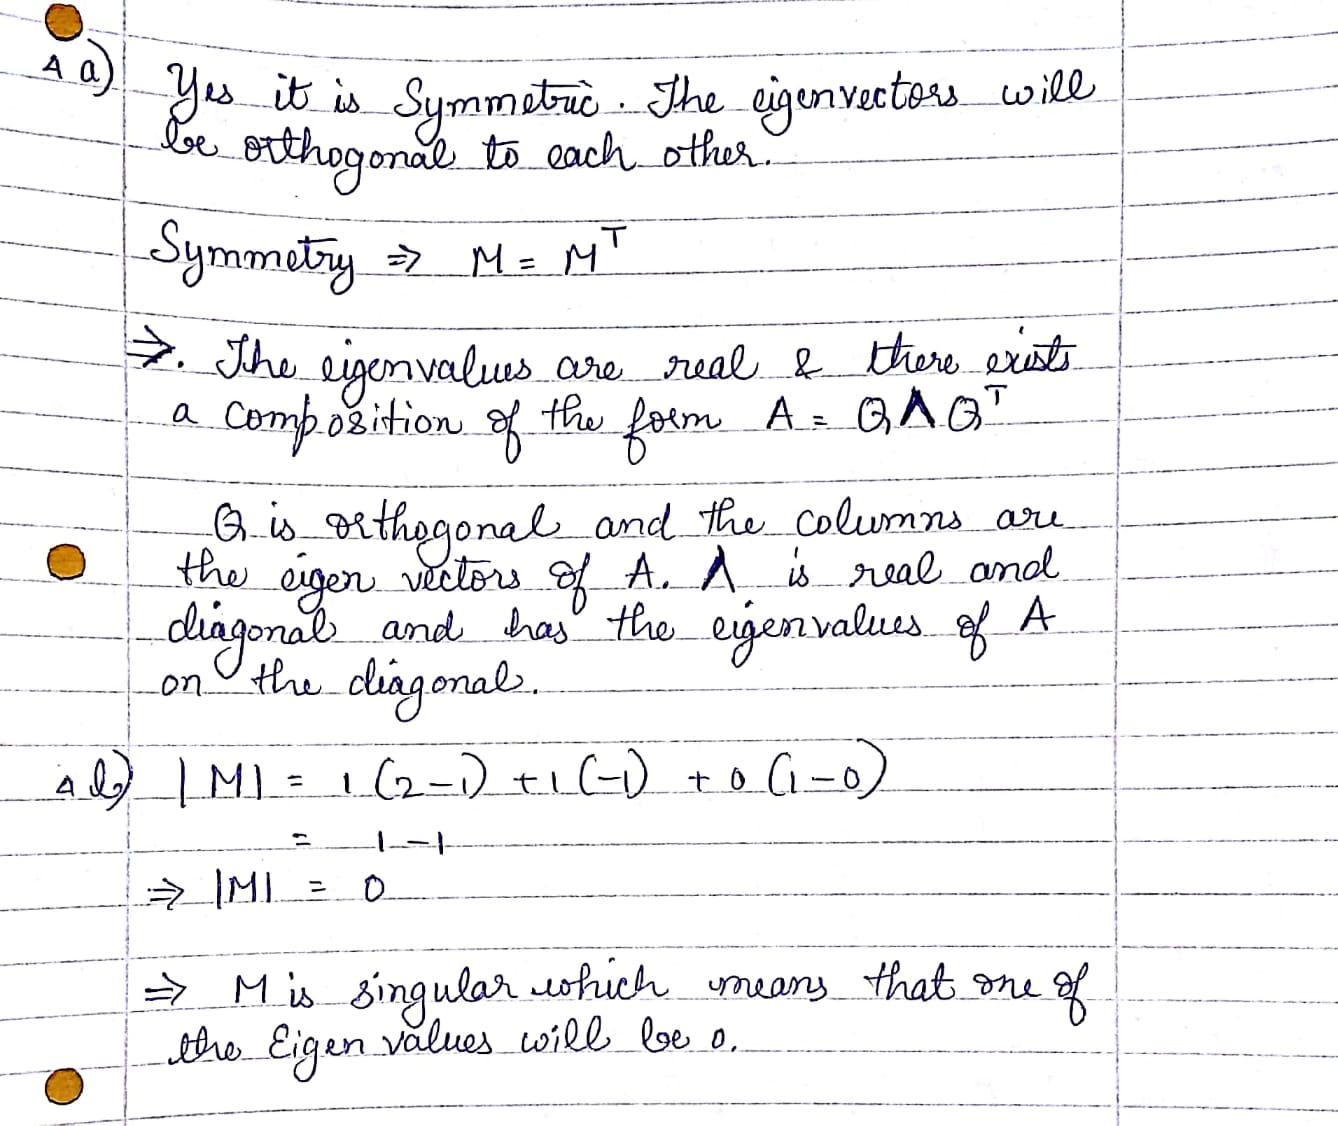 4 a) Yes it is Symmetric. The eigenvectors will
be orthogonal to each other.
Symmetry ⇒ M = Mᵀ
⇒. The eigenvalues are real & there exists
a composition of the form A = QΛQᵀ
Q is orthogonal and the columns are
the eigen vectors of A. Λ is real and
diagonal and has the eigenvalues of A
on the diagonal.
4 b) |M| = 1 (2-1) +1 (-1) + 0 (1-0)
= 1-1
⇒ |M| = 0
⇒ M is singular which means that one of
the Eigen values will be 0.